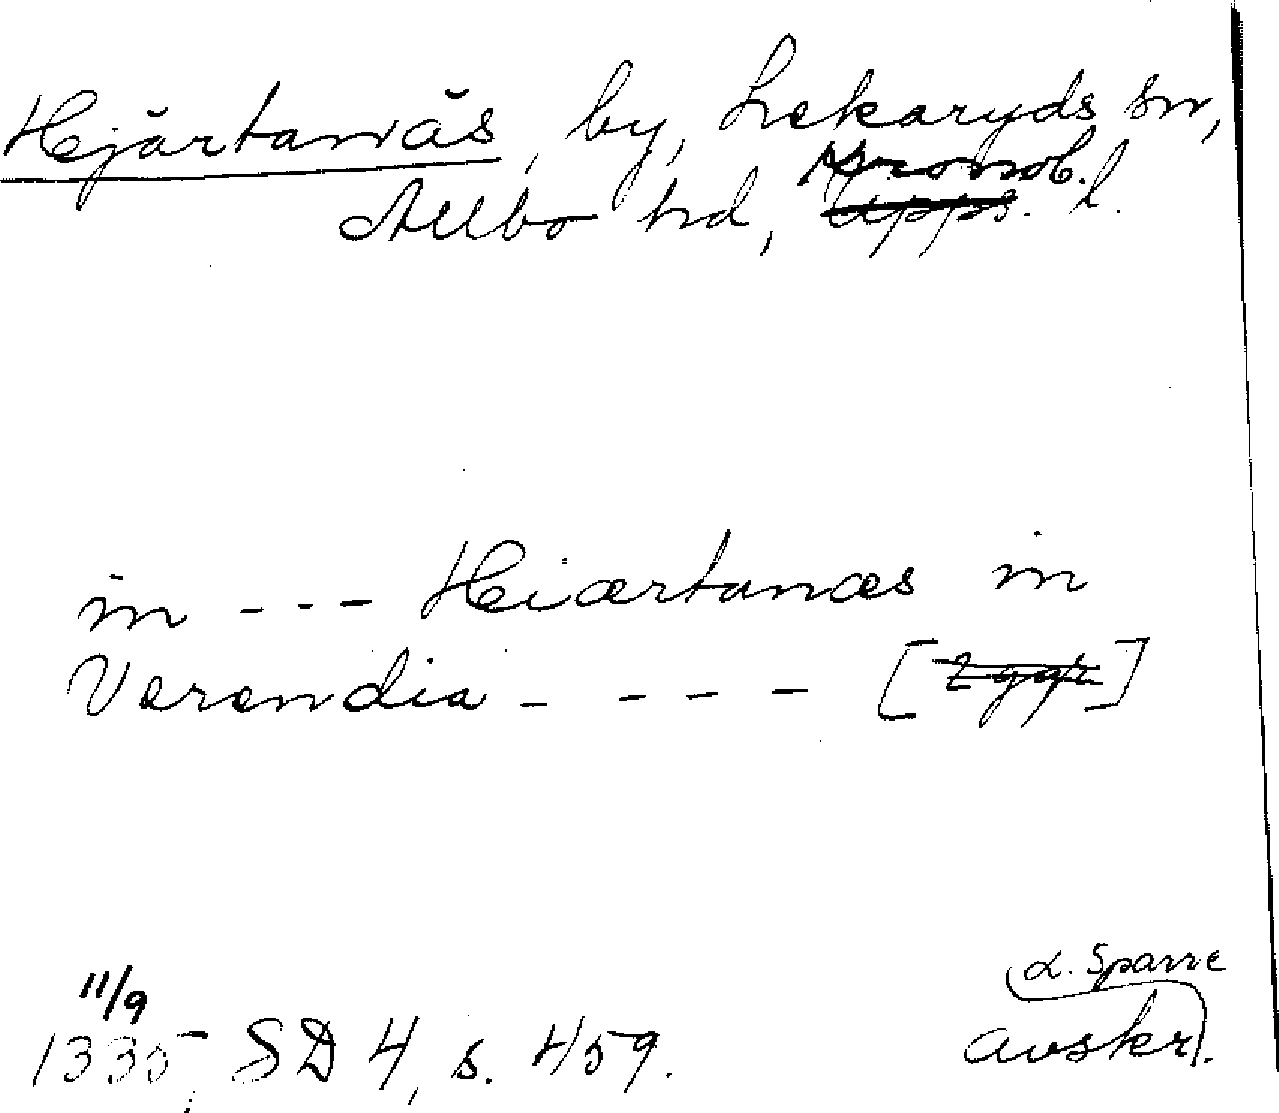 Hjärtanäs, by, Lekaryds sn,
Kronob.
Allbo hd, Upps. l.
in - - - Heiærtanæs in
Verendia - - - - [ ]
11/9 L. Sparre
1335, SD 4, s. 459. avskr.